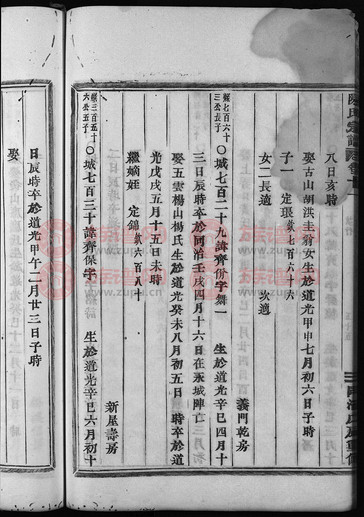 八日亥時
娶古山胡洪圭翁女生於道光甲申七月初六日子時
子一 定珢欽七百六十六
女二長適 次適
義門乾房
能七百六十三公長子 〇城七百二十九諱齊併字舞一 生於道光辛巳四月十
三日辰時卒於同治壬戌四月十六日在永城陣亡
娶五雲楊山楊氏生於道光癸未八月初五日 時卒於道
光戊戌五月十五日未時
繼嫡姪 定錦欽六百八十
新屋壽房
能三百五十六公五子 〇城七百三十諱齊保字 生於道光辛巳六月初十
日辰時卒於道光甲午二月廿三日子時
娶